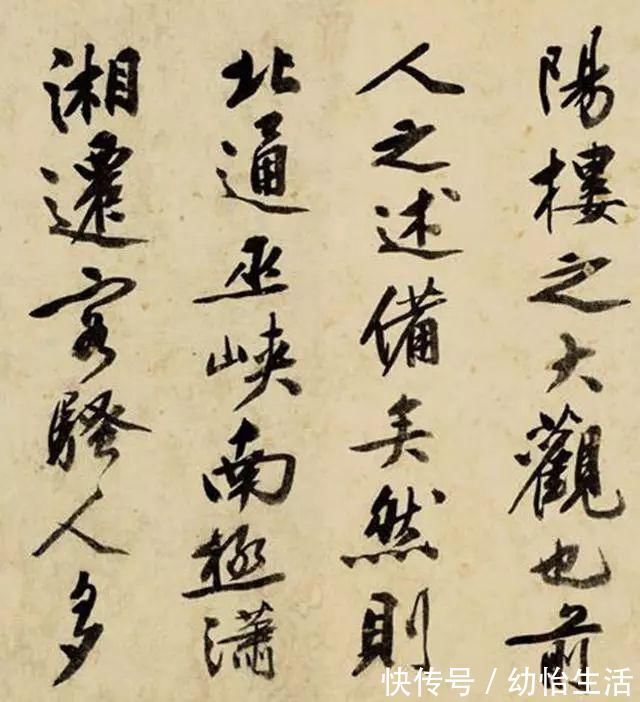 陽樓之大觀也前
人之述備矣然則
北通巫峽南極潇
湘遷客騷人多
快传号/幼怡生活